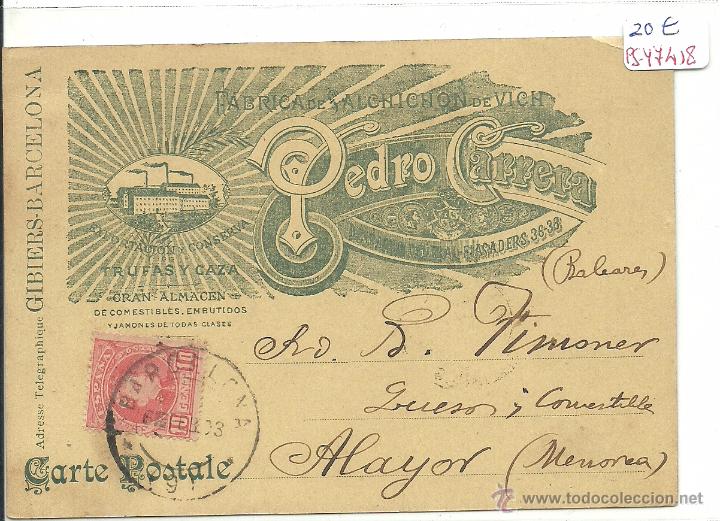 20 €
PS-47418
FABRICA DE SALCHICHÓN DE VICH
Pedro Carrera
36-38
EXPORTACION CONSERVA
TRUFAS Y CAZA
GRAN ALMACEN
DE COMESTIBLES, EMBUTIDOS
Y JAMONES DE TODAS CLASES
Adresse Telegraphique GIBIERS-BARCELONA
(Baleares)
Timoner
Quesos y Comestible
Alayor (Menorca)
ESPAÑA
10 CENT 10
BARCELONA
Carte Postale
www.todocoleccion.net